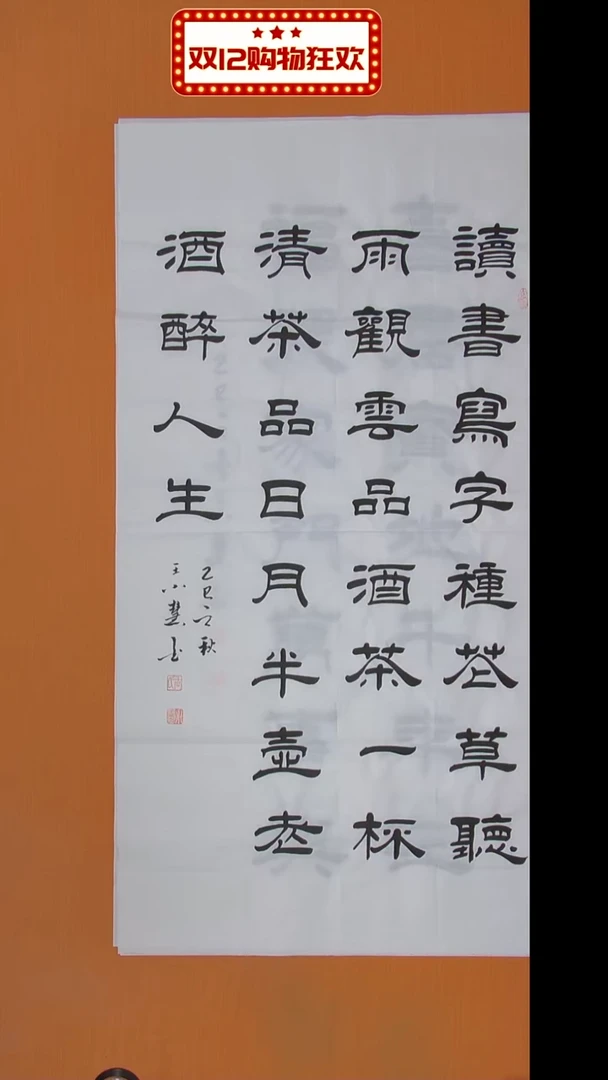 双12购物狂欢
讀書寫字種花草聽
雨觀雲品酒茶一杯
清茶品日月半壺老
酒醉人生
乙巳之秋
王小慧书